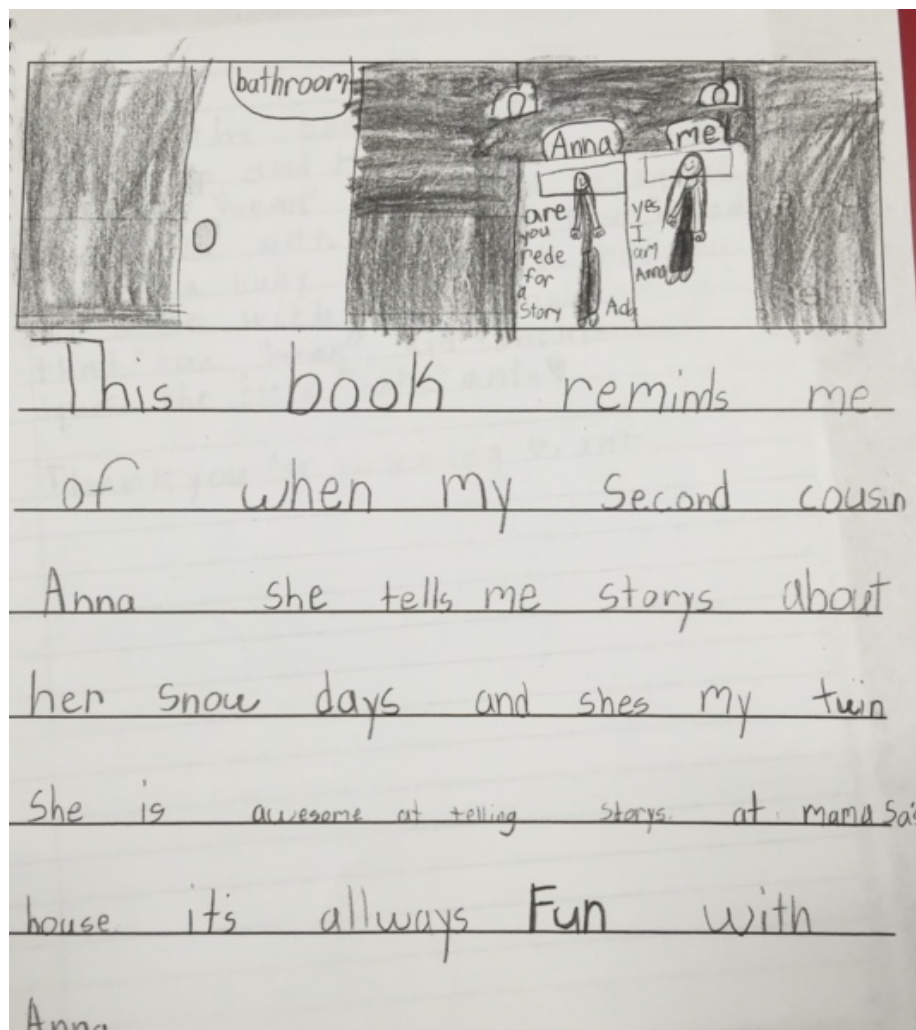 bathroom
Anna
me
are
you
rede
for
a
story
Ada
yes
I
am
Anna
This book reminds me
of when my second cousin
Anna she tells me storys about
her snow days and shes my twin
She is awesome at telling storys. at mama Sa's
house. it's allways Fun with
Anna